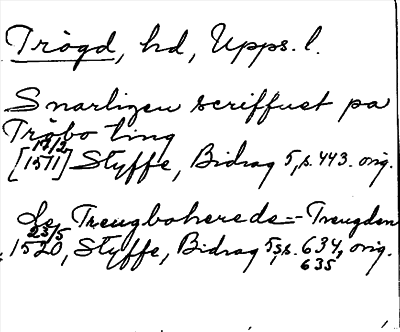 Trögd, hd, Upps. l.
Snarligen scriffuet pa
Tröbo ting
17/2
[1511] Styffe, Bidrag 5, s. 443. orig.
de Treugboherede = Treugden
23/5
1520, Styffe, Bidrag 5, s. 634, orig.
635